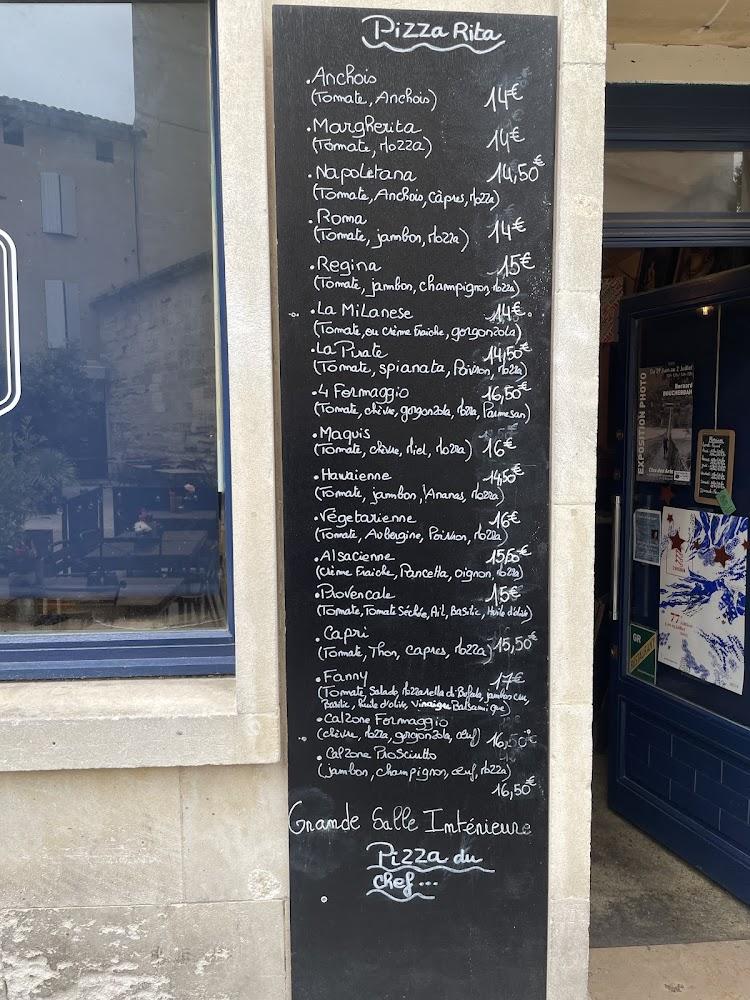 Pizza Rita
.Anchois
(Tomate, Anchois) 14€
.Margherita
(Tomate, Mozza) 14€
.Napoletana 14,50€
(Tomate, Anchois, Câpres, Mozza)
.Roma
(Tomate, jambon, Mozza) 14€
.Regina 15€
(Tomate, jambon, champignon, Mozza)
.La Milanese 14€
(Tomate, ou Crème Fraiche, gorgonzola)
.La Pirate 14,50€
(Tomate, spianata, Poivron, Mozza)
.4 Formaggio 16,50€
(Tomate, chèvre, gorgonzola, Mozza, Parmesan)
.Maquis
(Tomate, chèvre, Miel, Mozza) 16€
.Hawaienne 14,50€
(Tomate, jambon, Ananas, Mozza)
.Végetarienne 16€
(Tomate, Aubergine, Poivron, Mozza)
.Alsacienne 15,50€
(Crème Fraiche, Pancetta, oignon, Mozza)
.Provencale 15€
(Tomate, Tomate Séchée, Ail, Basilic, Huile d'olive)
.Capri
(Tomate, Thon, Capres, Mozza) 15,50€
.Fanny 17€
(Tomate, Salade, Mozzarella di Bufala, jambon cru,
Basilic, Huile d'olive, Vinaigre Balsamique)
.Calzone Formaggio
(chèvre, Mozza, gorgonzola, œuf) 16,50€
.Calzone Prosciutto
(jambon, champignon, œuf, Mozza)
16,50€
Grande Salle Intérieure
Pizza du
chef...
EXPOSITION PHOTO
Bernard
BOUCHERBAH
77
GR